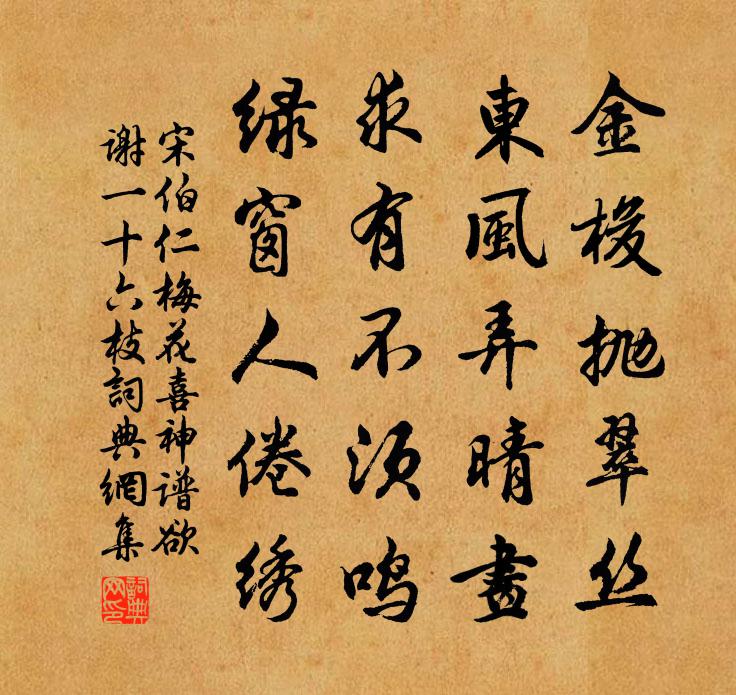 金梭抛翠丝
東風弄晴晝
求有不须鸣
绿窗人倦绣
宋伯仁梅花喜神谱欲
谢一十六枝詞典網集
詞典
网印